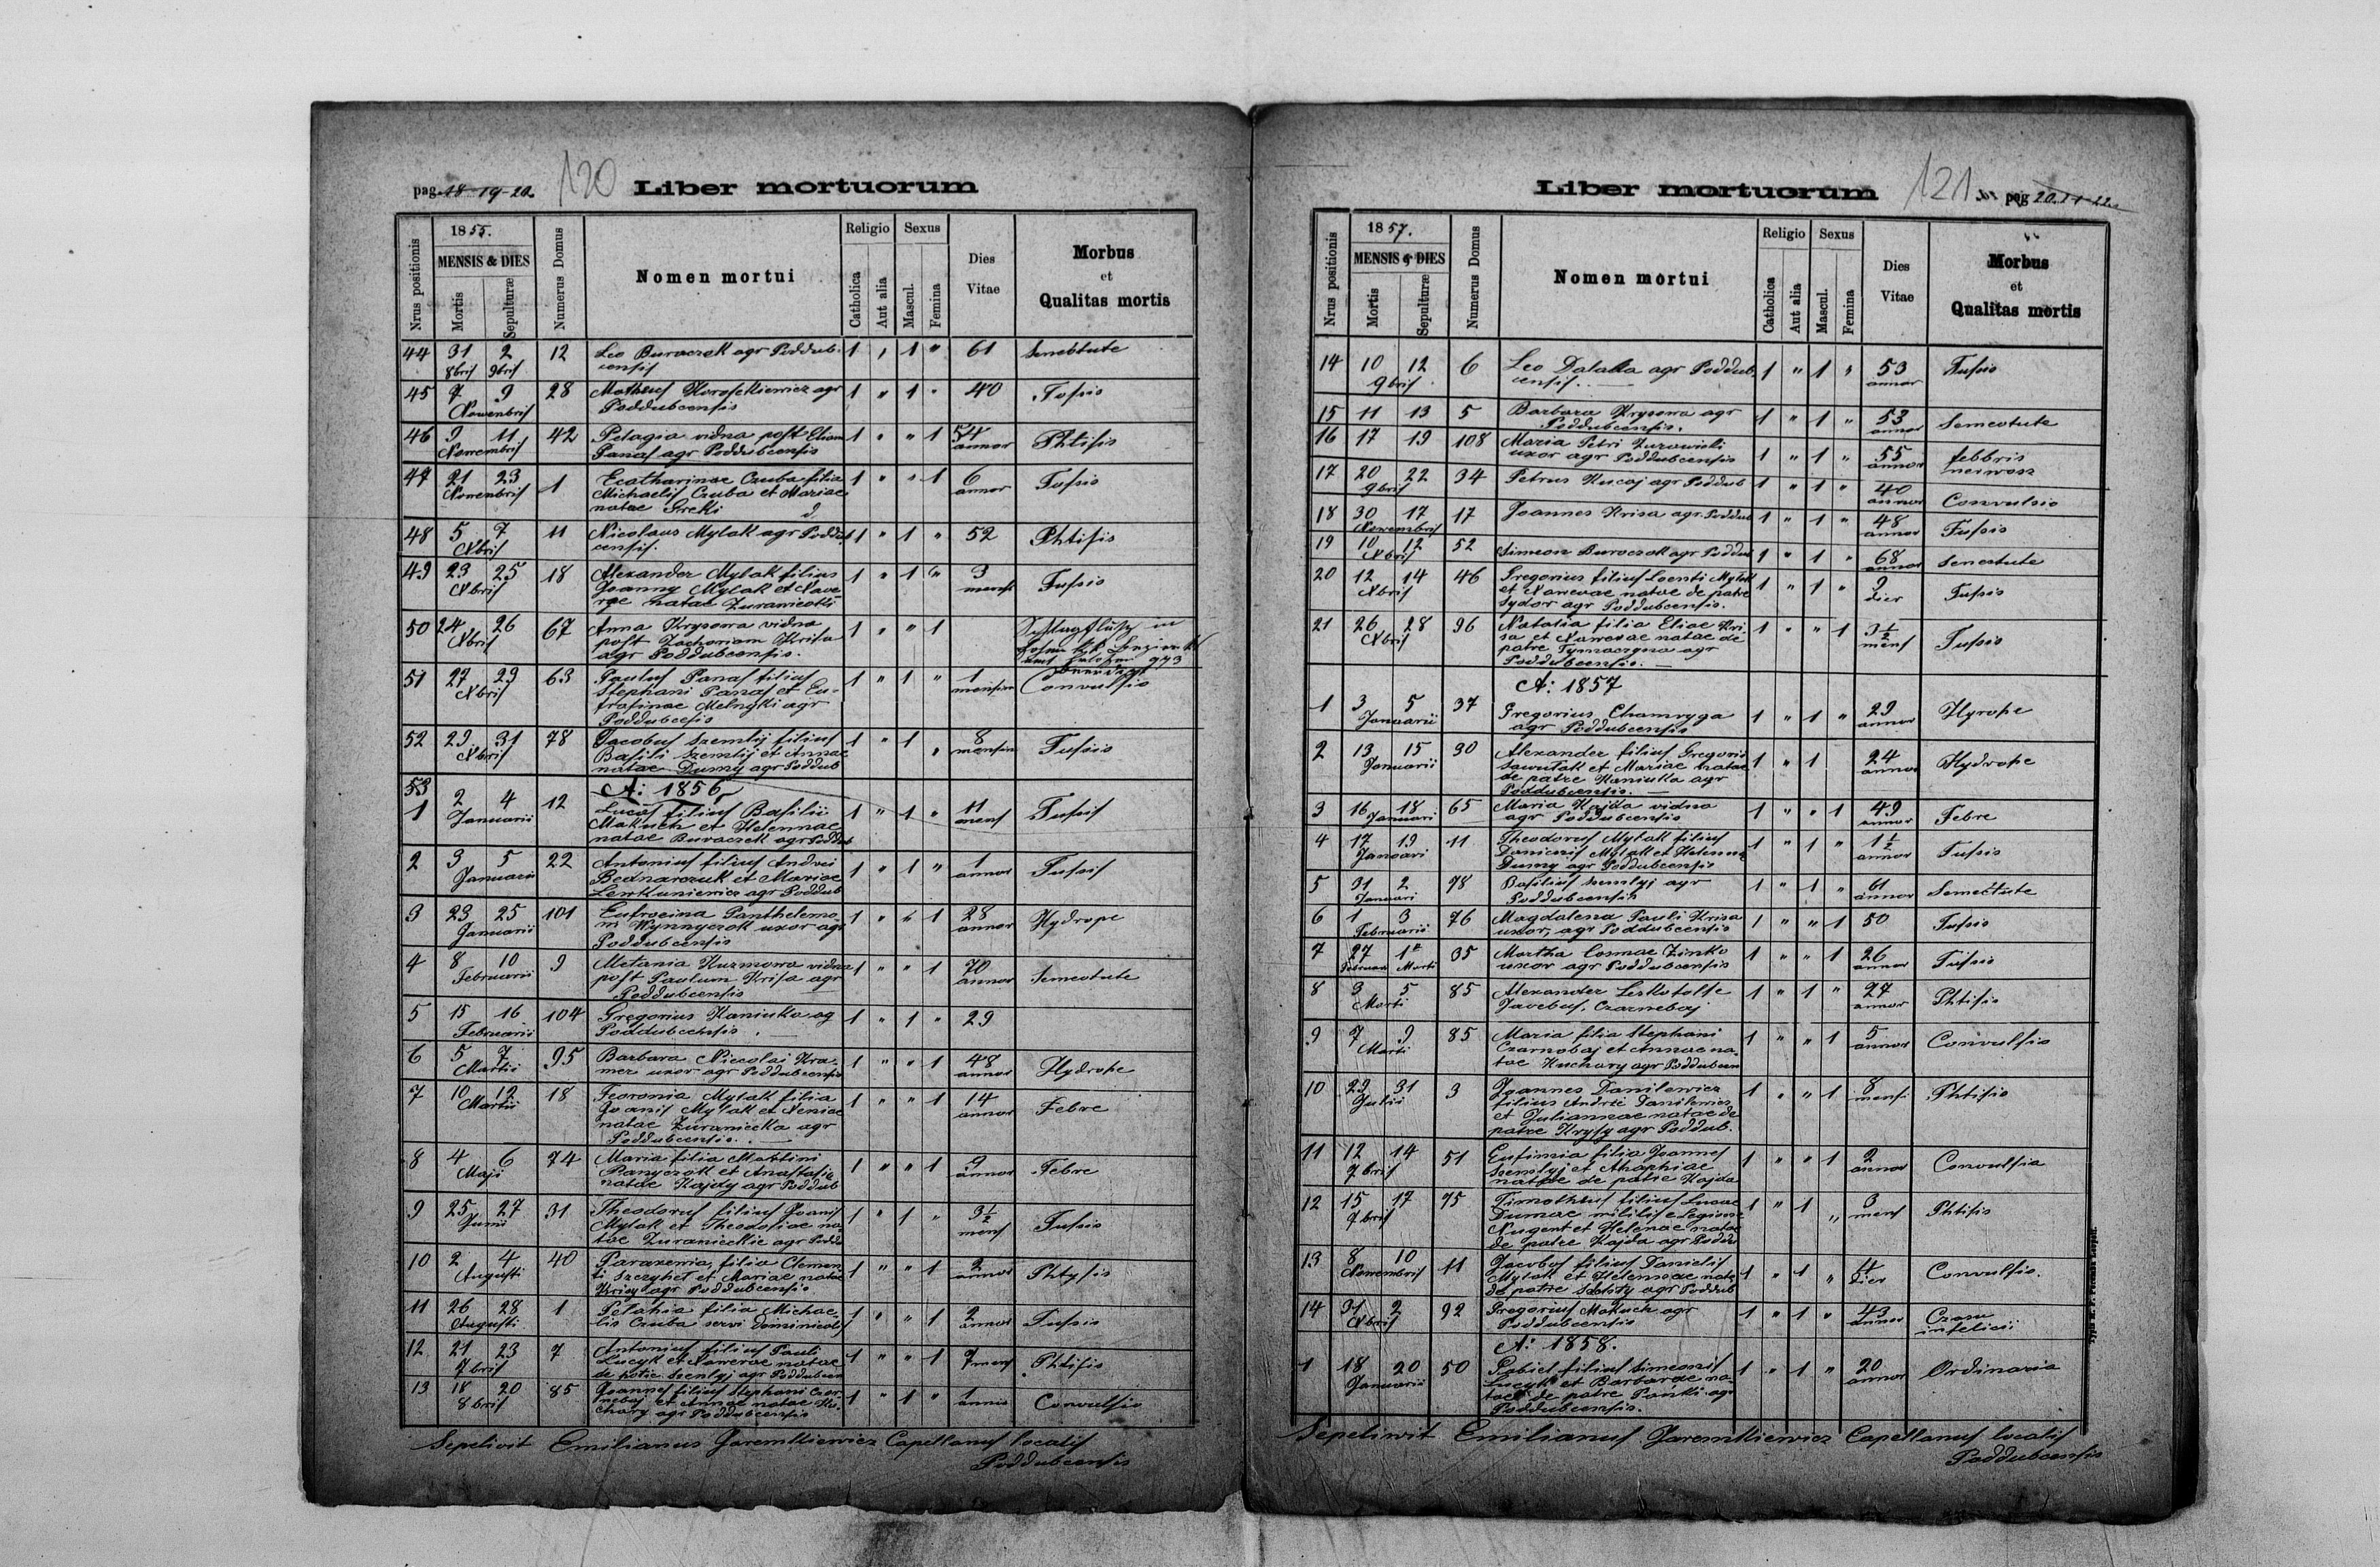 pag. 18-19-20 120 Liber mortuorum
Nrus positionis 1855. MENSIS & DIES Mortis Sepulturæ Numerus Domus Nomen mortui Religio Catholica Aut alia Sexus Mascul. Femina Dies Vitae Morbus et Qualitas mortis
44 31 2 12 Leo Buraczok agr Poddub- 1 " 1 " 61 Senectute
8bris 9bris censis
45 7 9 28 Matheus agr 1 " 1 " 40 Tussis
Nowembris Poddubcensis
46 9 11 42 Pelagia vidna post Eliam 1 " " 1 54 Phtisis
Nowembris Panas agr Poddubcensis annor
47 21 23 1 Ecatharinae Czuba filia 1 " " 1 6 Tussis
Nowembris Michaelis Czuba et Mariae annor
natae Greki
48 5 7 11 Nicolaus Mylak agr Poddub 1 " 1 " 52 Phtisis
Xbris censis.
49 23 25 18 Alexander Mylak filius 1 " 1 " 3 Tussis
Xbris Joanny Mylak et Xave- mens
rae natae Zuraniecki
50 24 26 67 Anna Krysowa vidna 1 " " 1
Xbris post Zachariam Krisa
agr Poddubcensis.
51 27 29 63 Paulus Panas filius 1 " 1 " 1 Convulsio
Xbris Stephani Panas et Eu- mensium
frosinae Melnyki agr
Poddubcesis
52 29 31 78 Jacobus Szemlij filius 1 " 1 " 8 Tussis
Xbris Basili Szemlij et Annae mensium
natae Dumy agr Poddub
53 A: 1856
1 2 4 12 Lucas filius Basilii 1 " 1 " 11 Tussis
Januarii Makuch et Helennae mens
natae Buraczek agr Poddub
2 3 5 22 Antonius filius Andrei 1 " 1 " 1 Tussis
Januarii Bednarczuk et Mariae annor
Lewkuniewicz agr Poddub
3 23 25 101 Eufrocina Panthelemo- 1 " " 1 28 Hydrope
Januarii ni Wynnyczok uxor agr annor
Poddubcensis
4 8 10 9 Melania Kuzmowa vidna 1 " " 1 70 Senectute
Februarii post Paulum Krisa agr annor
Poddubcensis
5 15 16 104 Gregorius Kaniuka ag 1 " 1 " 29
Februarii Poddubcensis.
6 5 7 95 Barbara Niccolai Kra- 1 " " 1 48 Hydrope
Martii mer uxor agr Poddubcensis annor
7 10 12 18 Feoronia Mylak filia 1 " " 1 14 Febre
Martii Joanis Mylak et Xeniae annor
natae Zuraniecka agr
Poddubcensis.
8 4 6 74 Maria filia Martini 1 " " 1 9 Febre
Maji Panyczok et Anastasie annor
natae Kajdy agr Poddub
9 25 27 31 Theodorus filius Joanis 1 " 1 " 3½ Tussis
Junii Mylak et Theodosiae na- mens
tae Zuranieckie agr Poddu
10 2 4 40 Paraxenia, filia Clemen- 1 " " 1 2 Phtysis
Augusti ti Szczyhel et Mariae natae annor
Krisy agr Poddubcensis
11 26 28 1 Pelahia filia Michae- 1 " " 1 2 Tussis
Augusti lis Czuba servi dominicalis annor
12 21 23 7 Antonius filius Pauli 1 " " 1 7 mens Phtisis
7bris Lucyk et Xawerae natae
de patre Szemlyj agr Poddubcen
13 18 20 85 Joannes filius Stephani Czar- 1 " 1 " 1 Convulsio
8bris neboj et Annae natae Ku- annis
chary agr Poddubcensis
Sepelivit Emilianus Jaremkiewicz Capellanus localis
Poddubcensis
Liber mortuorum 121 pag 20.21-22.
Nrus positionis 1857. MENSIS & DIES Mortis Sepulturæ Numerus Domus Nomen mortui Religio Catholica Aut alia Sexus Mascul. Femina Dies Vitae Morbus et Qualitas mortis
14 10 12 6 Leo Dalaka agr Poddub 1 " 1 " 53 Tussis
9bris censis. annor
15 11 13 5 Barbara Krysowa agr 1 " 1 " 53 Senectute
Poddubcensis. annor
16 17 19 108 Maria Petri Zurawiski 1 " 1 " 55 febbris
uxor agr Poddubcensis annor nerwosa
17 20 22 34 Petrus Kucaj agr Poddub 1 " 1 " 40 Convulsio
9bris annor
18 30 17 17 Joannes Krisa agr Poddub 1 " 1 " 48 Tussis
Nowembris annor
19 10 12 52 Simeon Buraczok agr Poddub 1 " 1 " 68 Senectute
Xbris annor
20 12 14 46 Gregorius filius Leonti Mylak 1 " 1 " 9 Tussis
Xbris et Xawerae natae de patre dier
Sydor agr Poddubcensis.
21 26 28 96 Natalia filia Eliae Kri- 1 " " 1 3½ Tussis
Xbris sa et Xawerae natae de mens
patre Tymoczyna agr
Poddubcensis.
A: 1857
1 3 5 37 Gregorius Chamryga 1 " 1 " 29 Hyrope
Januarii agr Poddubcensis annor
2 13 15 90 Alexander filius Gregorii 1 " 1 24 Hydrope
Januarii Sawutak et Mariae natae annor
de patre Kaniuka agr
Poddubcensis.
3 16 18 65 Maria Kajda vidna 1 " " 1 49 Febre
Januari agr Poddubcensis annor
4 17 19 11 Theodorus Mylak filius 1 " 1 " 1½ Tussis
Januari Danienis Mylak et Helenna annor
Dumy agr Poddubcensis
5 31 2 78 Basilius Szemlyj agr 1 " 1 " 61 Senectute
Januari Poddubcensis annor
6 1 3 76 Magdalena Pauli Krisa 1 " " 1 50 Tussis
Februarii uxor, agr Poddubcensis
7 27 1 35 Martha Cosmae Zinko 1 " " 1 26 Tussis
Februari Marti uxor agr Poddubcensis annor
8 3 5 85 Alexander 1 " 1 " 27 Phtisis
Marti Czarneboj annor
9 7 9 85 Maria filia Stephani 1 " " 1 5 Convulsio
Marti Czarnoboj et Annae na- annor
tae Kuchary agr Poddubcen
10 29 31 3 Joannes Danilewicz 1 " " 1 8 Phtisis
Julii filius Andrei Danilewicz mens
et Juliannae natae de
patre Krysy agr Poddub.
11 12 14 51 Eufimia filia Joannes 1 " " 1 2 Convulsia
7bris Szemlyj et Ahaphiae annor
natae de patre Kajda
12 15 17 75 Timotheus filius Lucae 1 " 1 " 3 Phtisis
7bris Dumae militis e Legione mens
Nugent et Helenae natae
de patre Kajda agr Poddu
13 8 10 11 Jacobus filius Danielis 1 " 1 " 4 Convulsio.
Nowembris Mylak et Helennae nate dier
de patre agr Poddub
14 31 2 92 Gregorius Makuch agr 1 " 1 " 43 Czasu
Xbris Poddubcensis annor infelicii
A: 1858.
1 18 20 50 Gabiel filius Simeonis 1 " 1 " 20 Ordinaria
Januarii Lucyk et Barbarae na- annor
tae de patre Panki agr
Poddubcensis.
Sepeliwit Emilianus Jaremkiewicz Capellanus localis
Poddubcensis